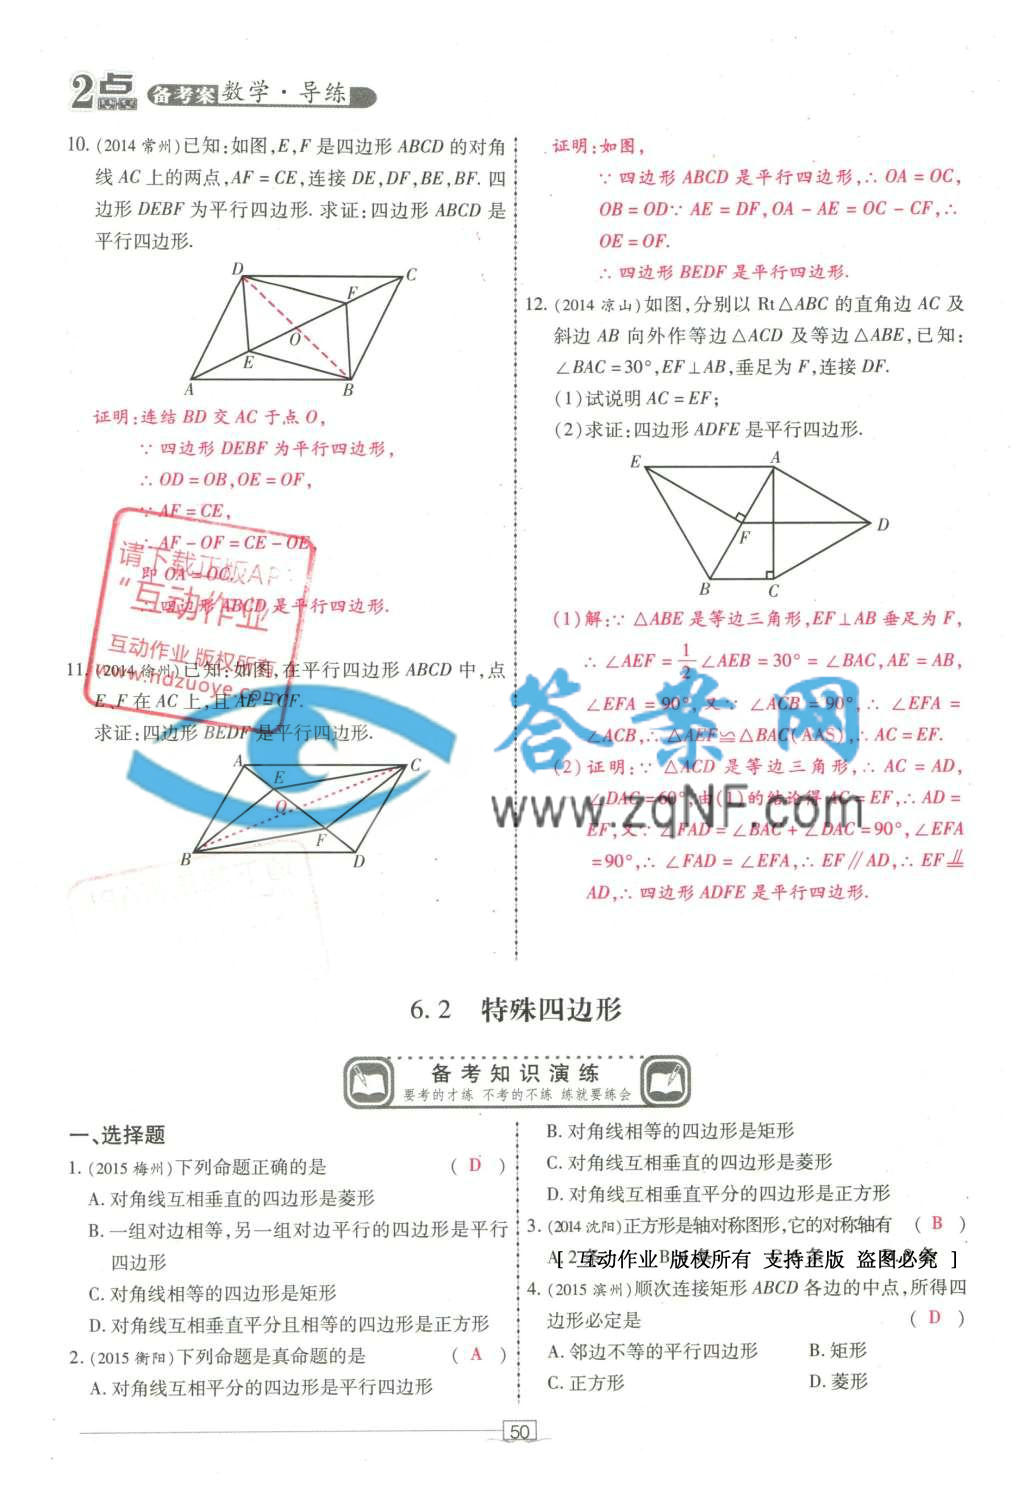 2点 备考案 数学·导练
10. (2014 常州)已知:如图,E,F 是四边形 ABCD 的对角
线 AC 上的两点,AF = CE,连接 DE,DF,BE,BF. 四
边形 DEBF 为平行四边形. 求证:四边形 ABCD 是
平行四边形.
D C F O E A B
证明:连结 BD 交 AC 于点 O,
∵ 四边形 DEBF 为平行四边形,
∴ OD = OB,OE = OF,
∵ AF = CE,
∴ AF - OF = CE - OE,
即 OA = OC.
∴ 四边形 ABCD 是平行四边形.
请下载正版AP
“互动作业
互动作业 版权所有
www.hdzuoye.com
11. (2014 徐州)已知:如图,在平行四边形 ABCD 中,点
E、F 在 AC 上,且 AE = CF.
求证:四边形 BEDF 是平行四边形.
A C E O F B D
证明:如图,
∵ 四边形 ABCD 是平行四边形,∴ OA = OC,
OB = OD∵ AE = DF,OA - AE = OC - CF,∴
OE = OF.
∴ 四边形 BEDF 是平行四边形.
12. (2014 凉山)如图,分别以 Rt△ABC 的直角边 AC 及
斜边 AB 向外作等边△ACD 及等边△ABE,已知:
∠BAC = 30°,EF⊥AB,垂足为 F,连接 DF.
(1)试说明 AC = EF;
(2)求证:四边形 ADFE 是平行四边形.
E A D F B C
(1)解:∵ △ABE 是等边三角形,EF⊥AB 垂足为 F,
∴ ∠AEF = 1/2 ∠AEB = 30° = ∠BAC,AE = AB,
∠EFA = 90°,又∵ ∠ACB = 90°,∴ ∠EFA =
∠ACB,∴ △AEF≌△BAC(AAS),∴ AC = EF.
(2)证明:∵ △ACD 是等边三角形,∴ AC = AD,
∠DAC = 60°,由(1)的结论得 AC = EF,∴ AD =
EF,又∵ ∠FAD = ∠BAC + ∠DAC = 90°,∠EFA
= 90°,∴ ∠FAD = ∠EFA,∴ EF∥AD,∴ EF⊥∥
AD,∴ 四边形 ADFE 是平行四边形.
答案网
www.zqNF.com
6.2 特殊四边形
备考知识演练
要考的才练 不考的不练 练就要练会
一、选择题
1. (2015 梅州)下列命题正确的是 ( D )
A. 对角线互相垂直的四边形是菱形
B. 一组对边相等,另一组对边平行的四边形是平行
四边形
C. 对角线相等的四边形是矩形
D. 对角线互相垂直平分且相等的四边形是正方形
2. (2015 衡阳)下列命题是真命题的是 ( A )
A. 对角线互相平分的四边形是平行四边形
B. 对角线相等的四边形是矩形
C. 对角线互相垂直的四边形是菱形
D. 对角线互相垂直平分的四边形是正方形
3. (2014 沈阳)正方形是轴对称图形,它的对称轴有 ( B )
[ 互动作业 版权所有 支持正版 盗图必究 ]
4. (2015 滨州)顺次连接矩形 ABCD 各边的中点,所得四
边形必定是 ( D )
A. 邻边不等的平行四边形 B. 矩形
C. 正方形 D. 菱形
50